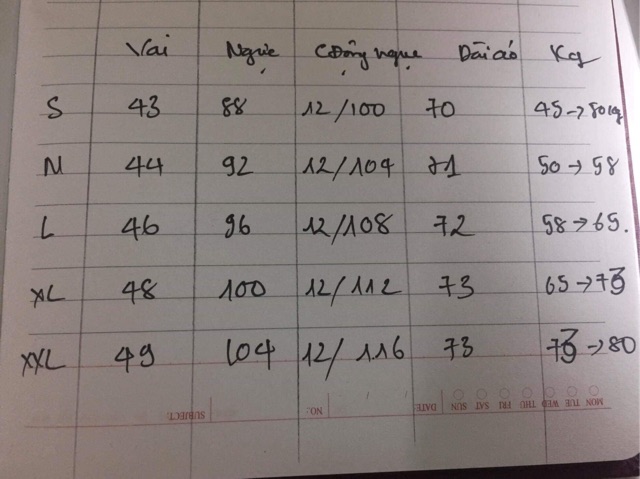 Vai Ngực Cđộng ngực Dài áo Kg
S 43 88 12/100 70 45→50kg
M 44 92 12/104 71 50→58
L 46 96 12/108 72 58→65.
XL 48 100 12/112 73 65→73
XXL 49 104 12/116 73 73→80
MON TUE WED THU FRI SAT SUN DATE: NO: SUBJECT: